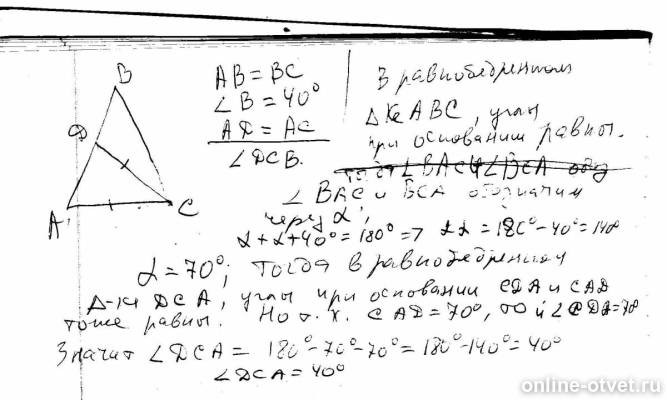 B
D
A
C
AB = BC
∠B = 40°
AD = AC
∠DCB.
В равнобедренном
Δке ABC, углы
при основании равны.
∠BAC и ∠BCA
∠BAC и BCA обозначим
через α,
α + α + 40° = 180° => 2α = 180° - 40° = 140
α = 70°; тогда в равнобедренном
Δ-ке DCA, углы при основании CDA и CAD
тоже равны. Но т.к. CAD = 70°, то и ∠CDA = 70
Значит ∠DCA = 180° - 70° - 70° = 180° - 140° = 40°
∠DCA = 40°
online-otvet.ru